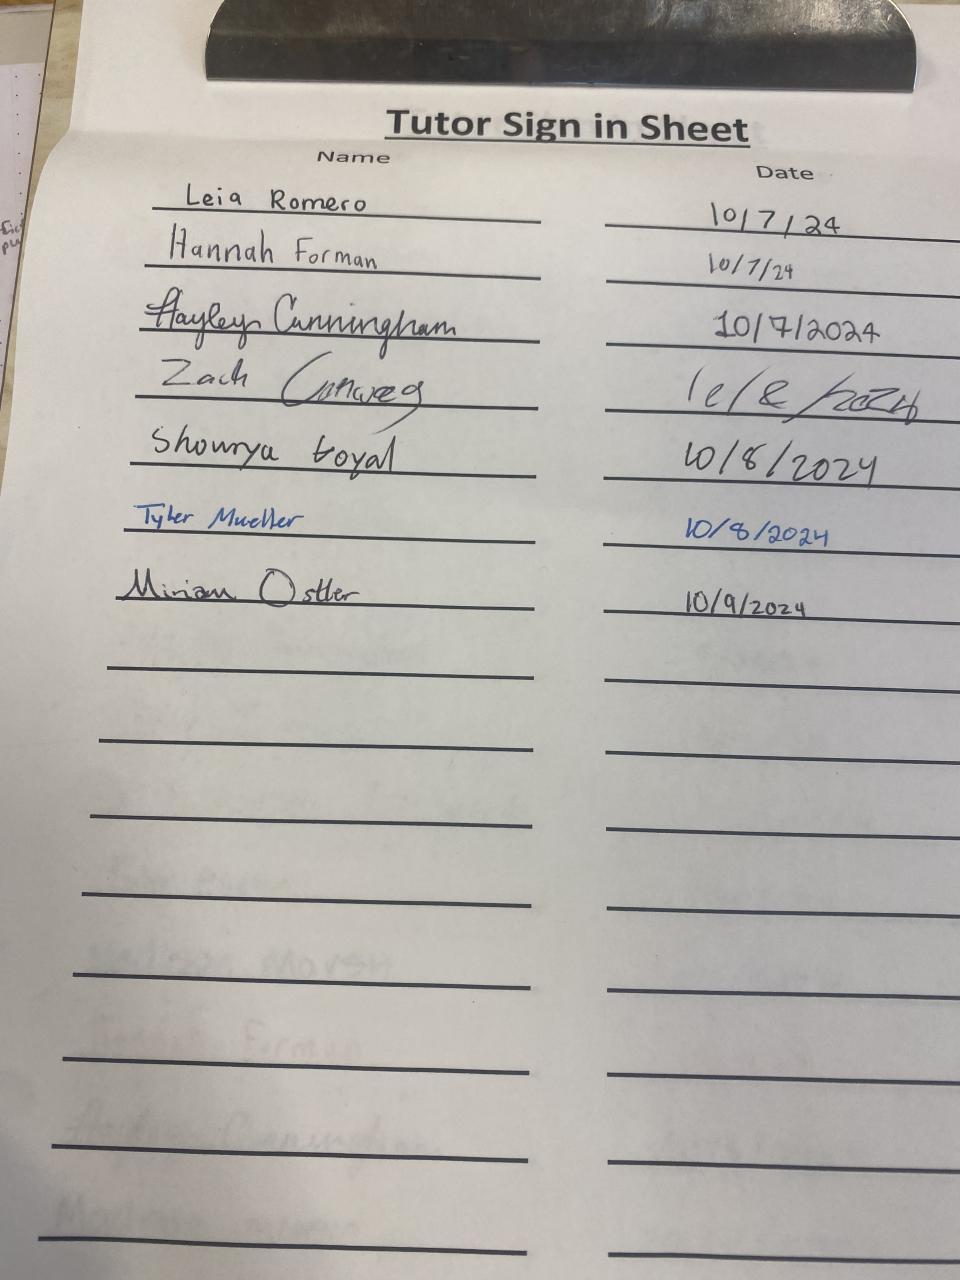 Tutor Sign in Sheet
Name Date
Leia Romero 10/7/24
Hannah Forman 10/7/24
Hayley Cunningham 10/7/2024
Zach 10/8/2024
Shourya Goyal 10/8/2024
Tyler Mueller 10/8/2024
Miriam Ostler 10/9/2024